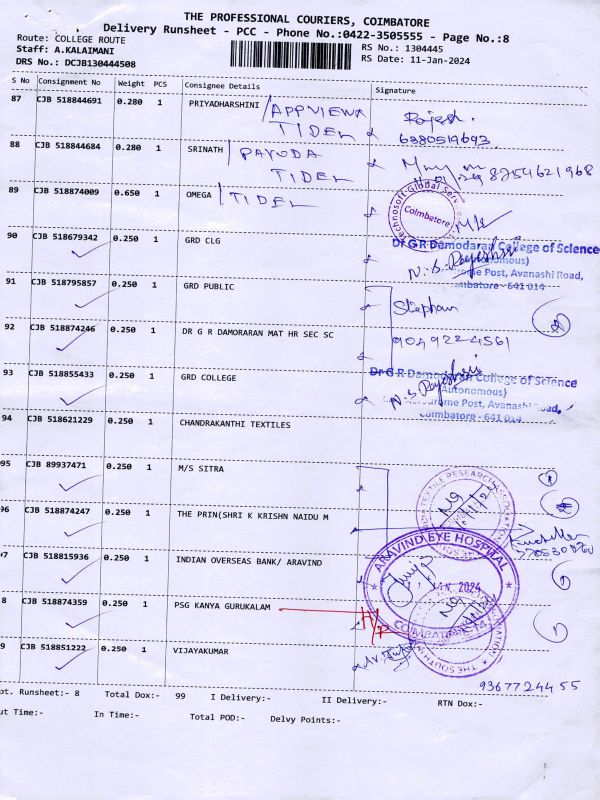 THE PROFESSIONAL COURIERS, COIMBATORE
Delivery Runsheet - PCC - Phone No.:0422-3505555 - Page No.:8
Route: COLLEGE ROUTE
RS No.: 1304445
Staff: A.KALAIMANI
RS Date: 11-Jan-2024
DRS No.: DCJB130444508
S No Consignment No Weight PCS Consignee Details Signature
87 CJB 518844691 0.280 1 PRIYADHARSHINI / APPVIEWX
TIDEL
Rajesh
6380519693
88 CJB 518844684 0.280 1 SRINATH / PAYODA
TIDEL
8754621968
89 CJB 518874009 0.650 1 OMEGA / TIDEL
Technosoft Global Serv
Coimbatore
90 CJB 518679342 0.250 1 GRD CLG
Dr G R Damodaran College of Science
(Autonomous)
N.S. Rajeshri
Aerodrome Post, Avanashi Road,
Coimbatore - 641 014
91 CJB 518795857 0.250 1 GRD PUBLIC
Stephan
92 CJB 518874246 0.250 1 DR G R DAMORARAN MAT HR SEC SC
9049224561
93 CJB 518855433 0.250 1 GRD COLLEGE
Dr G R Damodaran College of Science
(Autonomous)
N.S. Rajeshri
Aerodrome Post, Avanashi Road,
Coimbatore - 641 014
94 CJB 518621229 0.250 1 CHANDRAKANTHI TEXTILES
95 CJB 89937471 0.250 1 M/S SITRA
TEXTILE RESEARCH ASSOCIATION
96 CJB 518874247 0.250 1 THE PRIN(SHRI K KRISHN NAIDU M
97 CJB 518815936 0.250 1 INDIAN OVERSEAS BANK/ ARAVIND
ARAVIND EYE HOSPITAL
2024
COIMBATORE-14
8 CJB 518874359 0.250 1 PSG KANYA GURUKALAM
H/P
THE SOUTH
9 CJB 518851222 0.250 1 VIJAYAKUMAR
9367724455
pt. Runsheet:- 8 Total Dox:- 99 I Delivery:- II Delivery:- RTN Dox:-
ut Time:- In Time:- Total POD:- Delvy Points:-